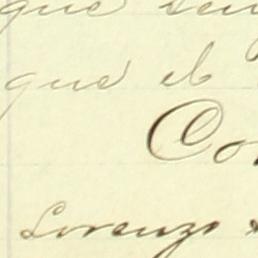 que
que el
Co
Lorenzo